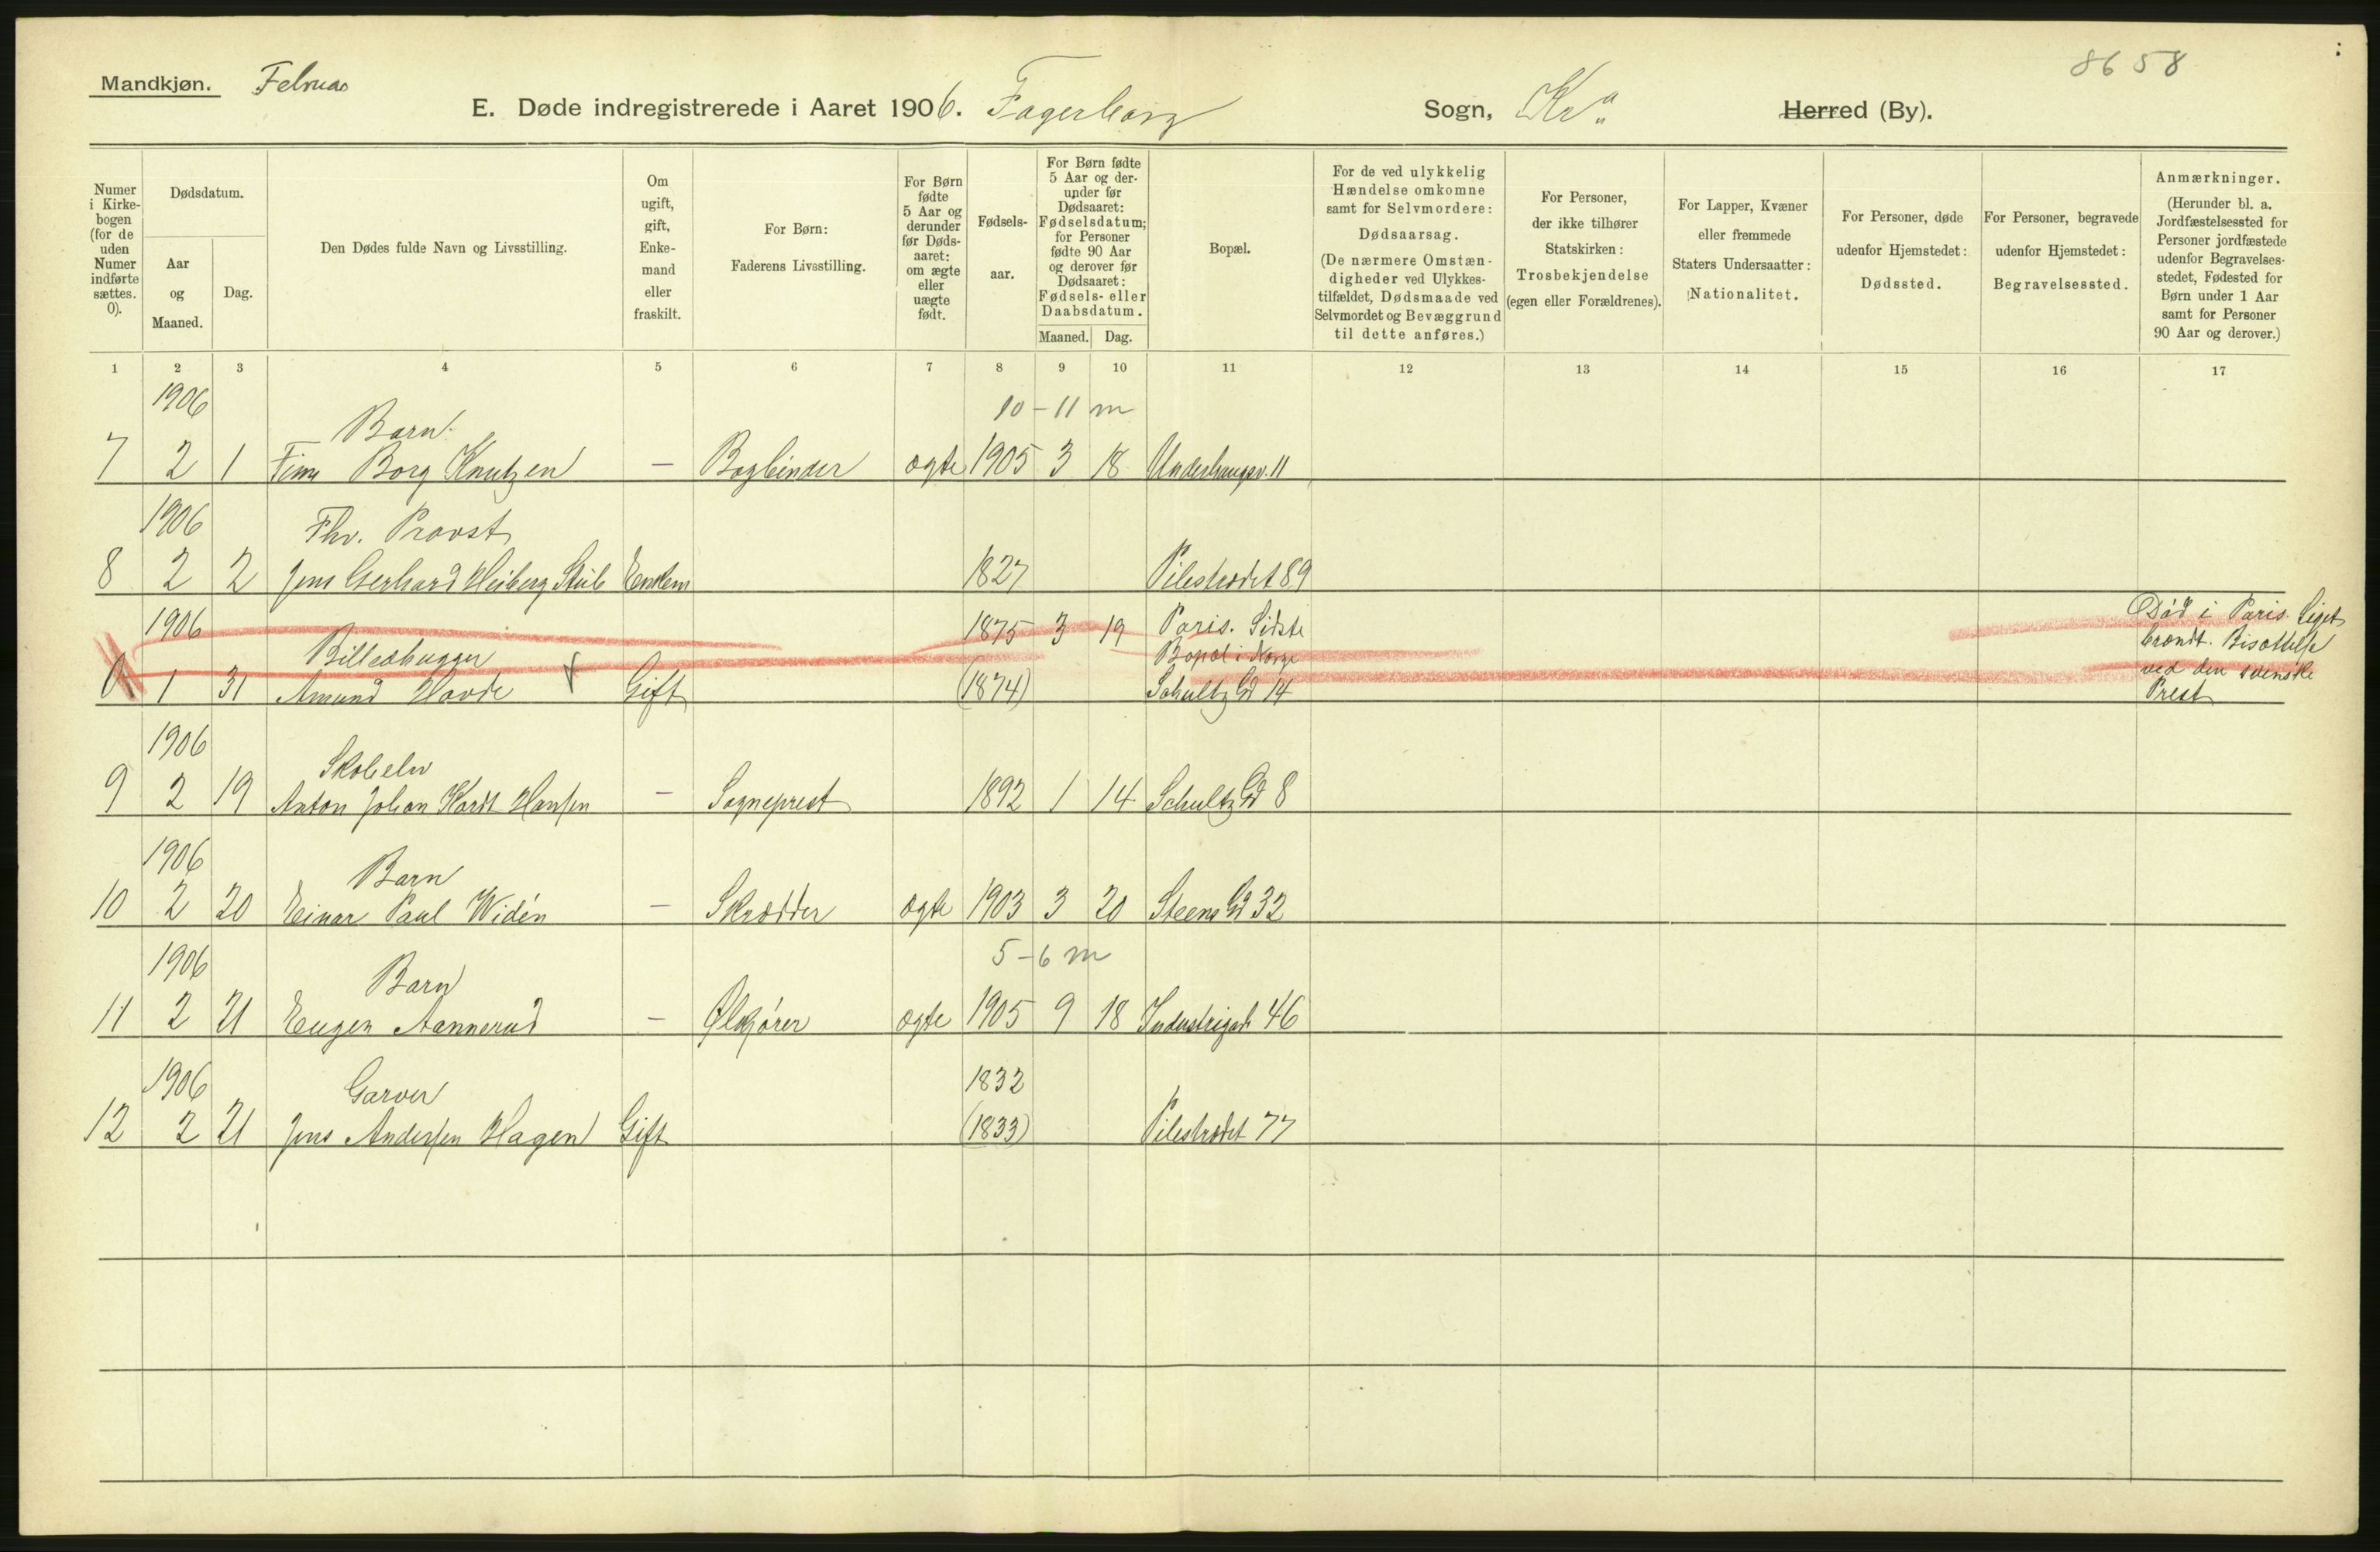 8658
Mandkjøn. Februar
E. Døde indregistrerede i Aaret 1906. Fagerborg Sogn, Kra Herred (By).
Numer i Kirkebogen (for de uden Numer indførte sættes. 0).
Dødsdatum.
Aar og Maaned.
Dag.
Den Dødes fulde Navn og Livsstilling.
Om ugift, gift, Enkemand eller fraskilt.
For Børn: Faderens Livsstilling.
For Børn fødte 5 Aar og derunder før Dødsaaret: om ægte eller uægte født.
Fødselsaar.
For Børn fødte 5 Aar og derunder før Dødsaaret: Fødselsdatum; for Personer fødte 90 Aar og derover før Dødsaaret: Fødsels- eller Daabsdatum.
Maaned. Dag.
Bopæl.
For de ved ulykkelig Hændelse omkomne samt for Selvmordere: Dødsaarsag. (De nærmere Omstændigheder ved Ulykkestilfældet, Dødsmaade ved Selvmordet og Bevæggrund til dette anføres.)
For Personer, der ikke tilhører Statskirken: Trosbekjendelse (egen eller Forældrenes).
For Lapper, Kvæner eller fremmede Staters Undersaatter: Nationalitet.
For Personer, døde udenfor Hjemstedet: Dødssted.
For Personer, begravede udenfor Hjemstedet: Begravelsessted.
Anmærkninger. (Herunder bl. a. Jordfæstelsessted for Personer jordfæstede udenfor Begravelsesstedet, Fødested for Børn under 1 Aar samt for Personer 90 Aar og derover.)
1 2 3 4 5 6 7 8 9 10 11 12 13 14 15 16 17
1906 Barn 10-11 m
7 2 1 Finn Borg Knutzen — Bogbinder ægte 1905 3 18 Underhaugsv. 11
1906 Fhv. Provst
8 2 2 Jens Gerhard Heiberg Stub Enkem 1827 Pilestrædet 89
1906 Billedhugger 1875 3 19 Paris. Sidste Bopæl i Norge Død i Paris. Liget brændt. Bisættelse
0 1 31 Amund Hovde Gift (1874) Schultz Gd 14 ved den svenske Prest
1906 Skoleelev
9 2 19 Anton Johan Hansen — Sogneprest 1892 1 14 Schultz Gd 8
1906 Barn
10 2 20 Einar Paul Widén — Skrædder ægte 1903 3 20 Steens Gd 32
1906 Barn 5-6 m
11 2 21 Eugen Aannerud — Ølkjører ægte 1905 9 18 Industrigade 46
1906 Garver 1832
12 2 21 Jens Andersen Hagen Gift (1833) Pilestrædet 77